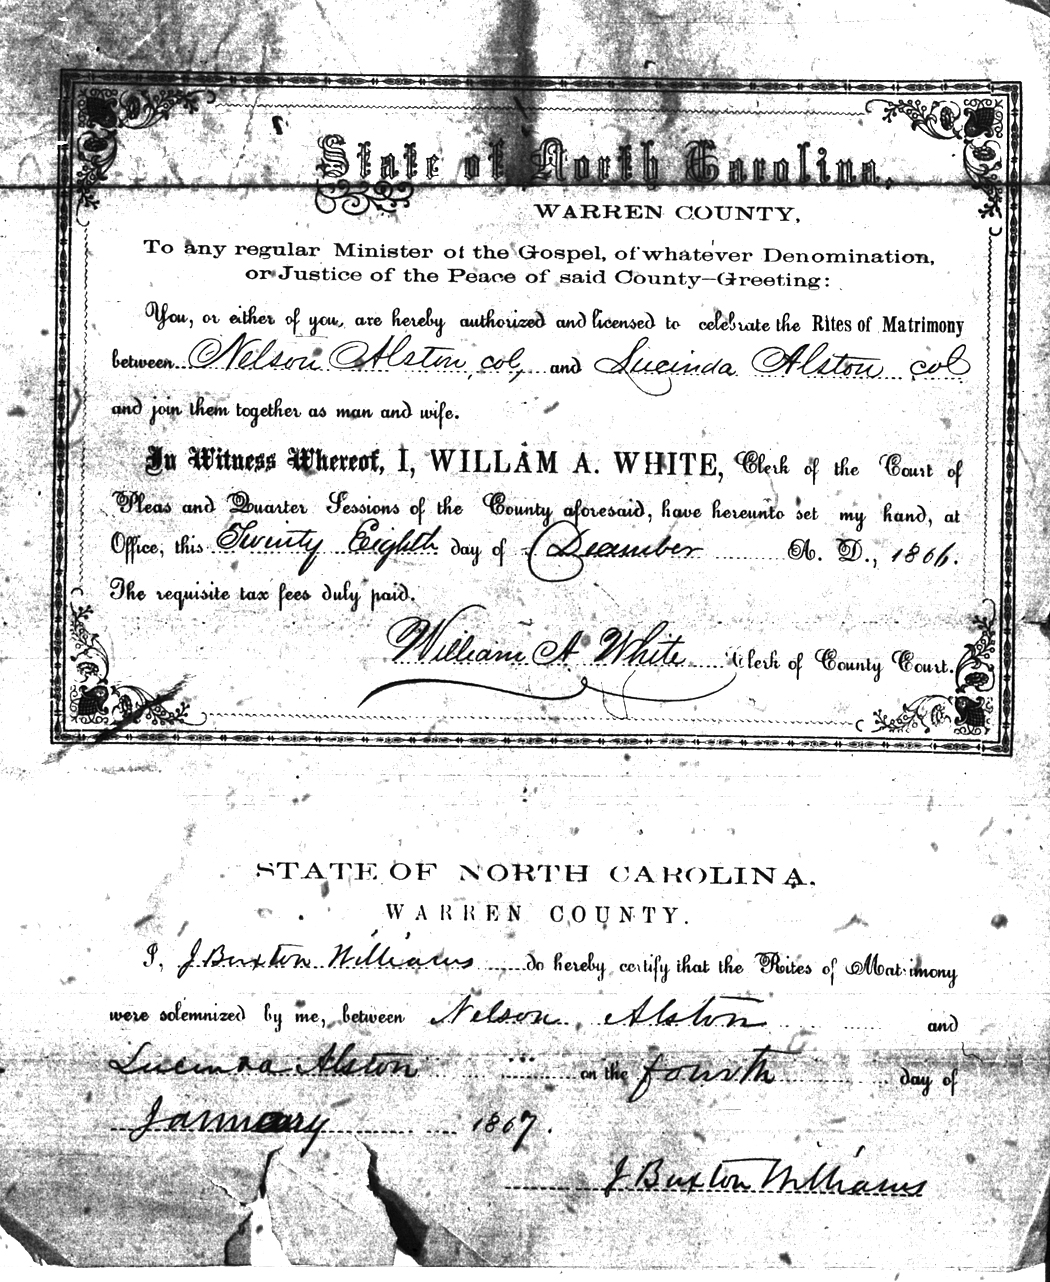 State of North Carolina,
WARREN COUNTY,
To any regular Minister of the Gospel, of whatever Denomination,
or Justice of the Peace of said County—Greeting:
You, or either of you, are hereby authorized and licensed to celebrate the Rites of Matrimony
between Nelson Alston, col, and Lucinda Alston col
and join them together as man and wife.
In Witness Whereof, I, WILLAM A. WHITE, Clerk of the Court of
Pleas and Quarter Sessions of the County aforesaid, have hereunto set my hand, at
Office, this Twenty Eighth day of December A. D., 1866.
The requisite tax fees duly paid.
William A White Clerk of County Court.
STATE OF NORTH CAROLINA.
WARREN COUNTY.
I, J Buxton Williams do hereby certify that the Rites of Matrimony
were solemnized by me, between Nelson Alston and
Lucinda Alston on the fourth day of
January 1867.
J Buxton Williams